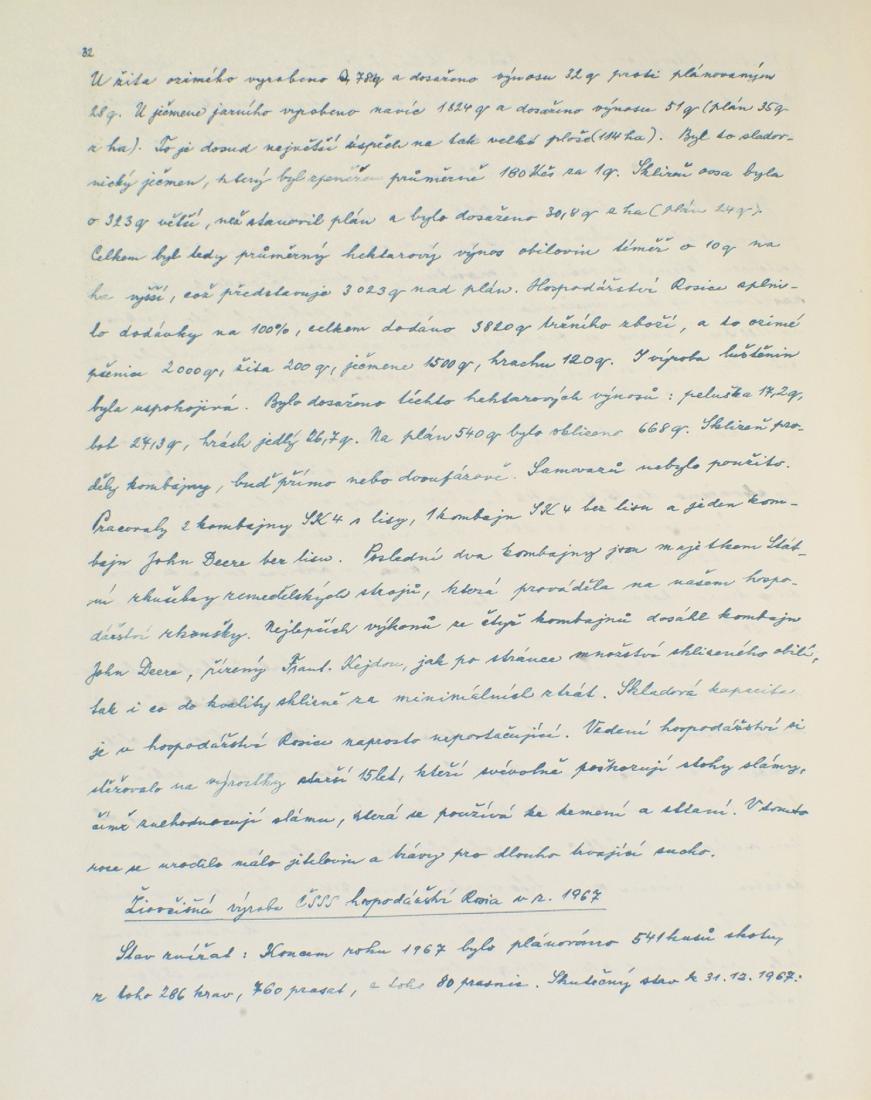 32
U žita ozimého vyrobeno 784q a dosaženo výnosu 32 q proti plánovaným
28 q. U ječmene jarního vyrobeno navíc 1824 q a dosaženo výnosu 51 q (plán 35 q
z ha). To je dosud největší úspěch na tak velké ploše (114 ha). Byl to sladov-
nický ječmen, který byl zpeněžen průměrně 180 Kčs za 1 q. Sklizeň ovsa byla
o 323 q větší, než stanovil plán a bylo dosaženo 30,8 q z ha (plán 24 q).
Celkem byl tedy průměrný hektarový výnos obilovin téměř o 10 q na
ha vyšší, což představuje 3 023 q nad plán. Hospodářství Rosice splni-
lo dodávky na 100%, celkem dodáno 3820 q tržního zboží, a to ozimé
pšenice 2 000 q, žita 200 q, ječmene 1500 q, hrachu 120 q. I výroba luštěnin
byla uspokojivá. Bylo dosaženo těchto hektarových výnosů: peluška 17,2 q,
bob 24,3 q, hrách jedlý 26,7 q. Na plán 540 q bylo sklizeno 668 q. Sklizeň pro-
děly kombajny, buď přímo nebo dvoufázově. Samovazů nebylo použito.
Pracovaly 2 kombajny SK 4 s lisy, 1 kombajn SK 4 bez lisu a jeden kom-
bajn John Deere bez lisu. Poslední dva kombajny jsou majetkem Stát-
ní zkušebny zemědělských strojů, která prováděla na našem hospo-
dářství zkoušky. Nejlepších výkonů ze čtyř kombajnů dosáhl kombajn
John Deere, řízený Frant. Kejdou, jak po stránce množství sklizeného obilí,
tak i co do kvality sklizně za minimálních ztrát. Skladová kapacita
je v hospodářství Rosice naprosto nepostačující. Vedení hospodářství si
stěžovalo na výrostky starší 15 let, kteří svévolně poškozují stohy slámy,
čímž znehodnocují slámu, která se používá ke krmení a stlaní. V tomto
roce se urodilo málo jetelovin a trávy pro dlouho trvající sucho.
Živočišná výroba ČSSS hospodářství Rosice v r. 1967
Stav zvířat: Koncem roku 1967 bylo plánováno 541 kusů skotu,
z toho 286 krav, 760 prasat, z toho 80 prasnic. Skutečný stav k 31.12.1967: